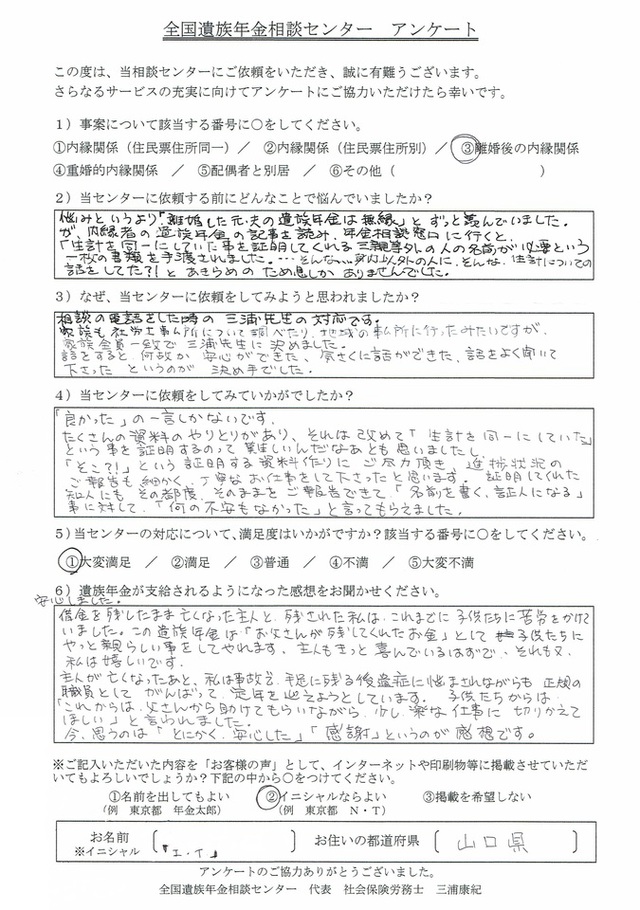 全国遺族年金相談センター　アンケート
この度は、当相談センターにご依頼をいただき、誠に有難うございます。
さらなるサービスの充実に向けてアンケートにご協力いただけたら幸いです。
1）事案について該当する番号に○をしてください。
①内縁関係（住民票住所同一）　／　②内縁関係（住民票住所別）／　③離婚後の内縁関係
④重婚的内縁関係　／　⑤配偶者と別居　／　⑥その他（　　　　　　　　　）
2）当センターに依頼する前にどんなことで悩んでいましたか？
悩みというより「離婚した元夫の遺族年金は無縁」とずっと思んでいました。
が、内縁者の遺族年金の記事を読み、年金相談窓口に行くと、
「生計を同一にしていた事を証明してくれる三親等外の人の名前が必要という
一枚の書類を手渡されました。…そんな…身内以外の人に、そんな、生計についての
話をしてた?!とあきらめのため息しかありませんでした。
3）なぜ、当センターに依頼をしてみようと思われましたか？
相談の電話をした時の三浦先生の対応です。
家族も社労士事ム所について調べたり、地域の事ム所に行ったみたいですが、
家族全員一致で三浦先生に決めました。
話をすると、何故か安心ができた、気さくに話ができた、話をよく聞いて
下さったというのが決め手でした。
4）当センターに依頼をしてみていかがでしたか？
「良かった」の一言しかないです。
たくさんの資料のやりとりがあり、それは改めて「生計を同一にしていた」
という事を証明するのって難しいんだなあとも思いましたし、
「そこ?!」という証明する資料作りにご尽力頂き、進捗状況の
ご報告も細かく、丁寧なお仕事をして下さったと思います。証明してくれた
知人にもその都度、そのままをご報告できて「名前を書く、証人になる」
事に対して、「何の不安もなかった」と言ってもらえました。
5）当センターの対応について、満足度はいかがですか？該当する番号に○をしてください。
①大変満足　／　②満足　／　③普通　／　④不満　／　⑤大変不満
6）遺族年金が支給されるようになった感想をお聞かせください。
安心しました。
借金を残したまま亡くなった主人と、残された私は、これまでに子供たちに苦労をかけて
いました。この遺族年金は「お父さんが残してくれたお金」として子供たちに
やっと親らしい事をしてやれます、主人もきっと喜んでいるはずで、それも又、
私は嬉しいです。
主人が亡くなったあと、私は事故で手足に残る後遺症に悩まされながらも正規の
職員としてがんばって、定年を迎えようとしています。子供たちからは
「これからは、父さんから助けてもらいながら、少し楽な仕事に切りかえて
ほしい」と言われました。
今、思うのは「とにかく、安心した」「感謝」というのが感想です。
※ご記入いただいた内容を「お客様の声」として、インターネットや印刷物等に掲載させていただ
いてもよろしいでしょうか？下記の中から○をつけてください。
①名前を出してもよい　②イニシャルならよい　③掲載を希望しない
（例　東京都　年金太郎）　（例　東京都　N・T）
お名前　お住いの都道府県　〔　山口県　〕
※イニシャル　〔「I.T」　〕
アンケートのご協力ありがとうございました。
全国遺族年金相談センター　代表　社会保険労務士　三浦康紀